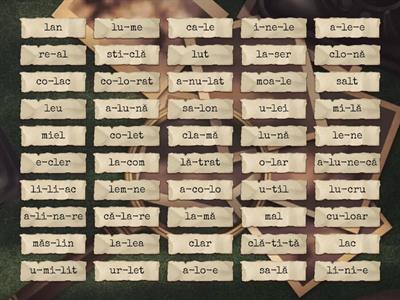 lan lu-me ca-le i-ne-le a-le-e
re-al sti-clă lut la-ser clo-nă
co-lac co-lo-rat a-nu-lat moa-le salt
leu a-lu-nă sa-lon u-lei mi-lă
miel co-let cla-mă lu-nă le-ne
e-cler la-com lă-trat o-lar a-lu-ne-că
li-li-ac lem-ne a-co-lo u-til lu-cru
a-li-na-re că-la-re la-mă mal cu-loar
măs-lin la-lea clar clă-ti-tă lac
u-mi-lit ur-let a-lo-e sa-lă li-ni-e